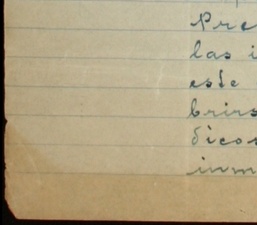 Pre
las i
este
brirs
dicos
inm